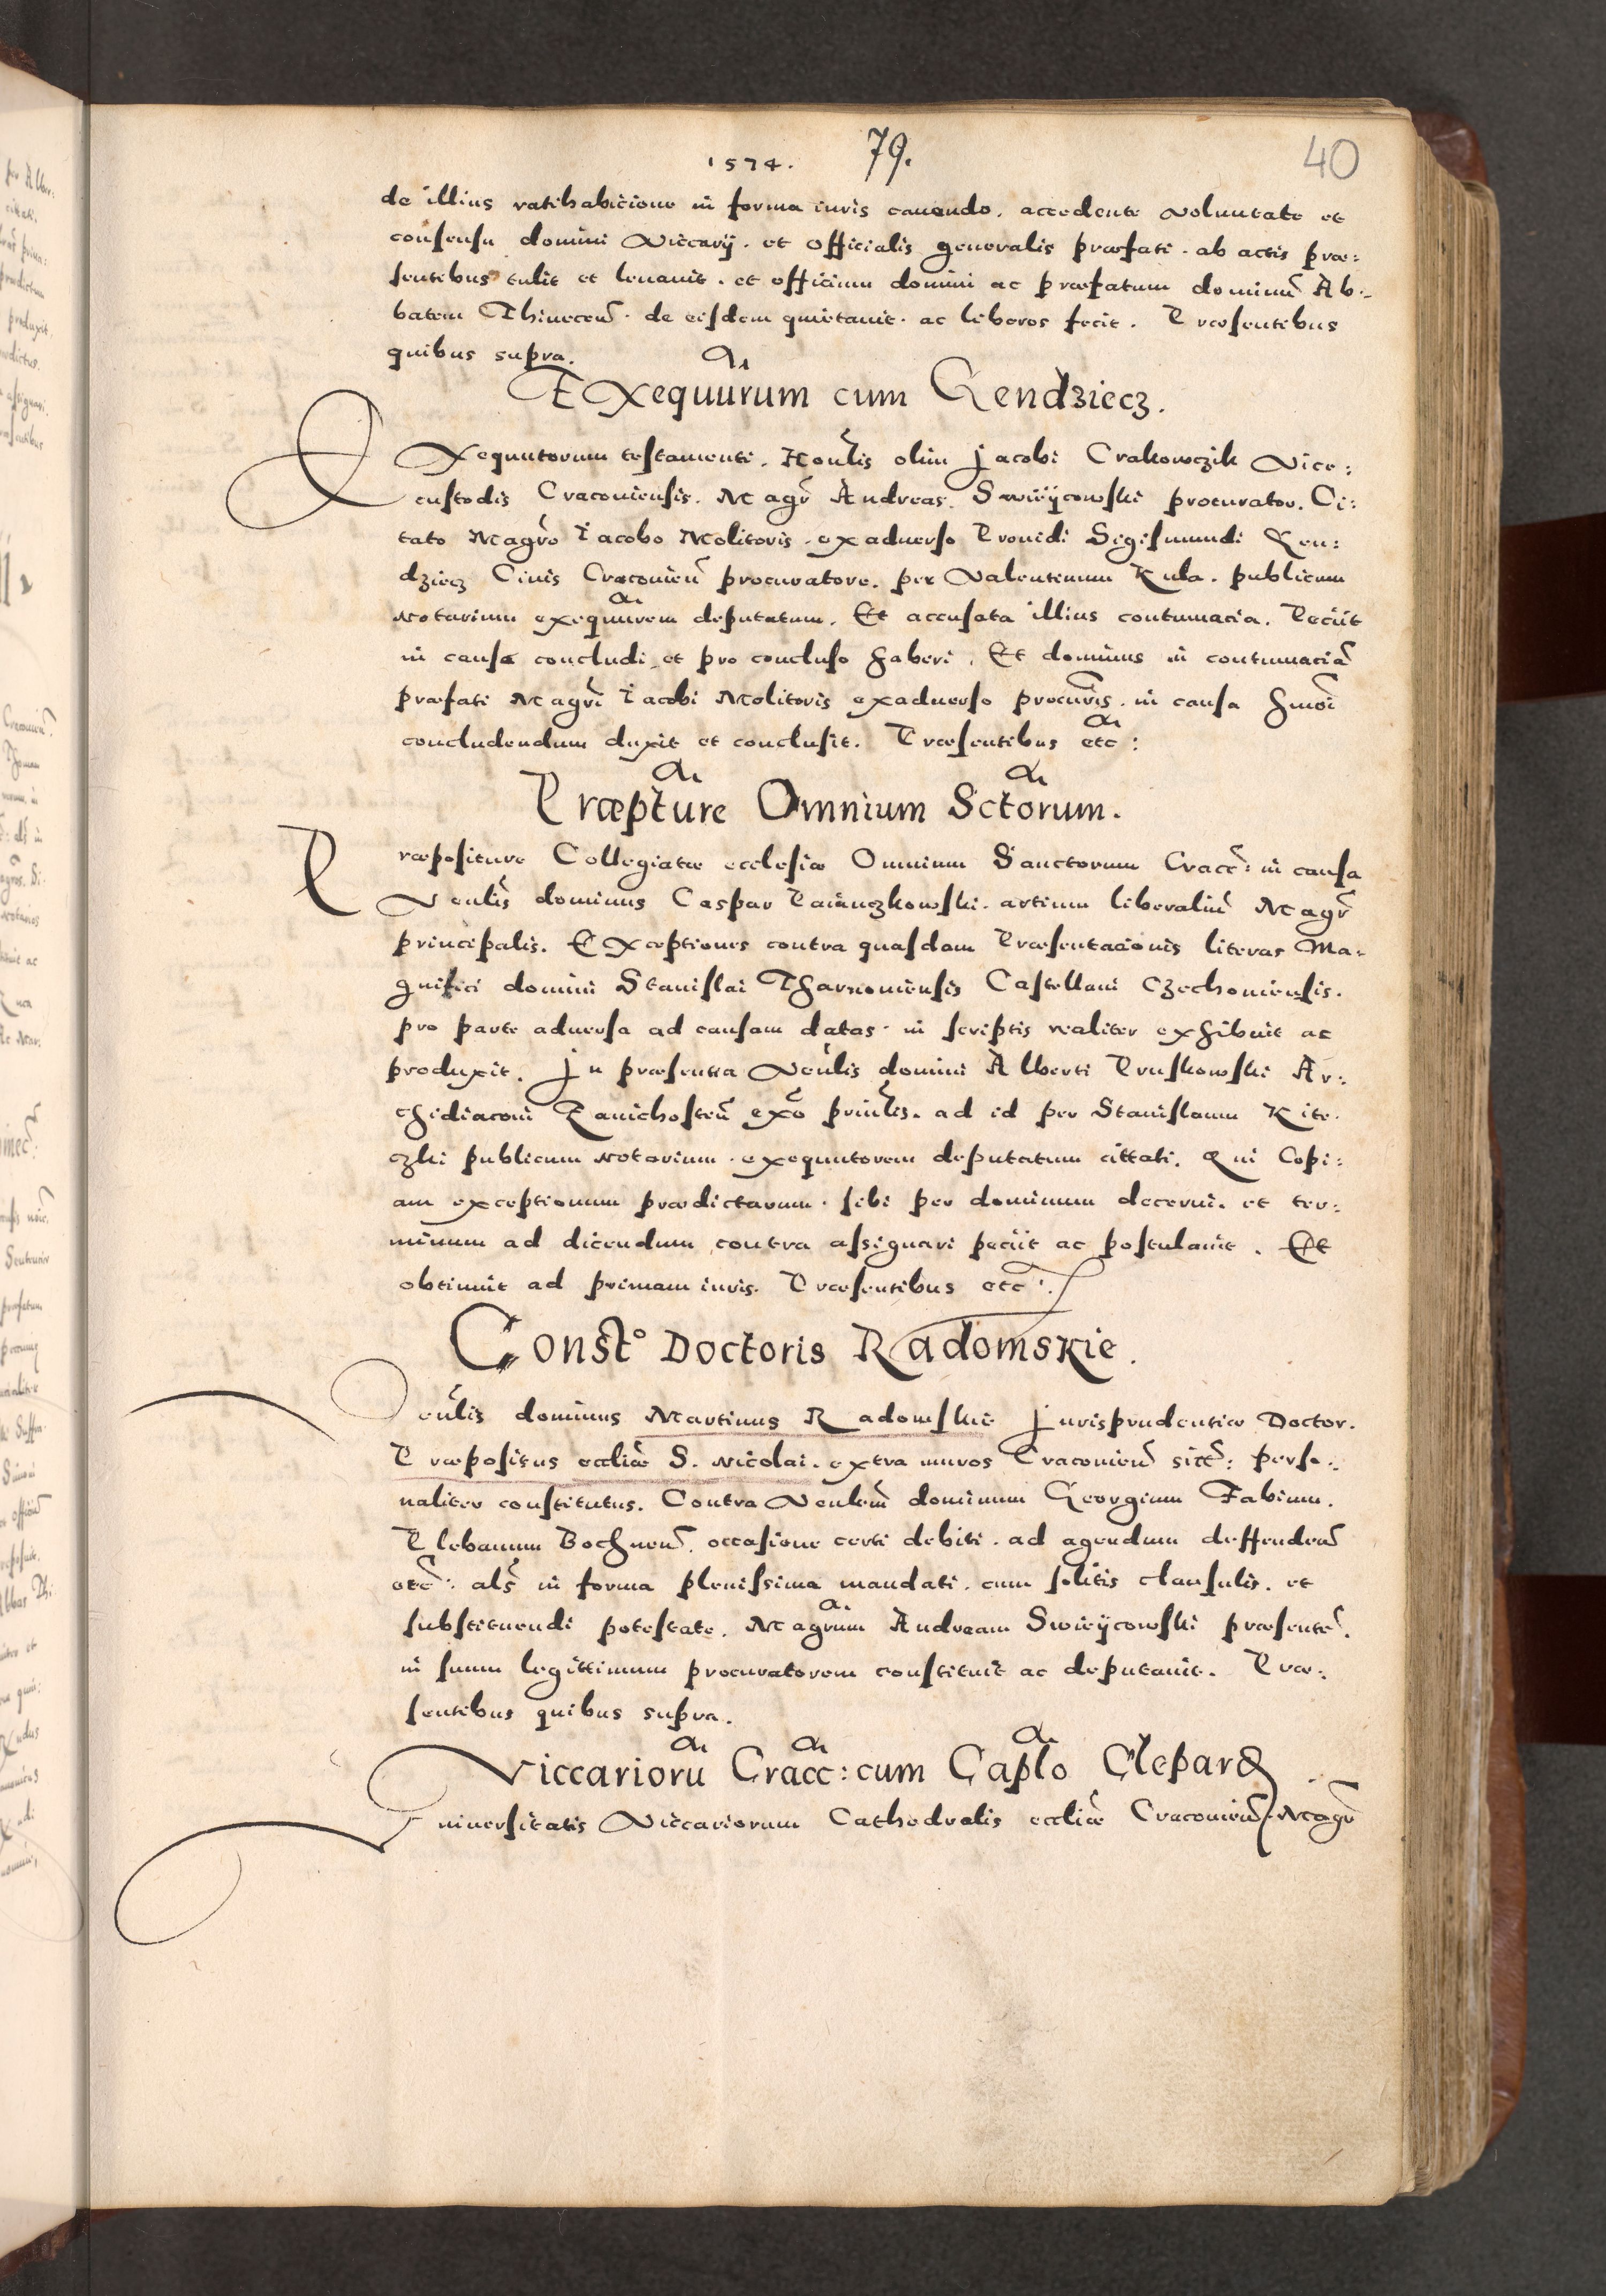 1574. 79. 40
de illius ratihabicione in forma iuris cauendo. accedente voluntate et
consensu domini Viccarij. et officialis generalis præfati. ab actis præ:
sentibus tulit et leuauit. et officium domini ac præfatum dominũ Ab:
batem Thinecen̄. de eisdem quietauit. ac liberos fecit. Præsentibus
quibus supra.
Exequurum cum Gendziecz.
Exequutorum testamenti. Honlis olim Jacobi Crakowczik Vice:
custodis Cracouiensis. Magr̄ Andreas Swieÿcowski procurator. Ci:
tato Magrō Iacobo Molitoris. exaduerso Prouidi Sigismundi Gen:
dziecz Ciuis Cracouien̄ procuratore. per Valentinum Kula. publicum
notarium exequurem deputatum. Et accusata illius contumacia. Peciit
in causa concludi et pro concluso haberi. Et dominus in contumaciā
præfati Magrī Iacobi Molitoris exaduerso procuris. in causa hmōi
concludendum duxit et conclusit. Præsentibus etc̄:
Præpture Omnium Sctorum.
Præpositure Collegiatæ ecclesiæ Omnium Sanctorum Cracc̄: in causa
Venlis dominus Caspar Paiunczkowski. artium liberaliũ Magr̄
principalis. Exceptiones contra quasdam Præsentacionis literas Ma:
gnifici domini Stanislai Tharnouiensis Castellani Czechouiensis.
pro parte aduersa ad causam datas. in scriptis realiter exhibuit ac
produxit. In præsentia Venlis domini Alberti Pruskowski Ar:
chidiaconi Zauichosten̄ exō prinlis. ad id per Stanislaum Kite.
czki publicum notarium. exequutorem deputatum cittati. Qui Copi:
am exceptionum prædictarum. sibi per dominum decerni. et ter:
minum ad dicendum contra assignari peciit ac postulauit. Et
obtinuit ad primam iuris. Præsentibus etc̄:
Const° Doctoris Radomskie.
Venlis dominus Martinus Radomskie Jurisprudentiæ Doctor.
Præpositus eccliæ S. Nicolai. extra muros Cracouien̄ sitæ: perso:
naliter constitutus. Contra Venlem dominum Georgium Fabium.
Plebanum Bochnen̄. occasione certi debiti. ad agendum deffenden̄
etc̄: als in forma plenissima mandati. cum solitis clausulis. et
substituendi potestate. Magrum Andream Swieÿcowski præsentē.
in suum legittimum procuratorem constituit ac deputauit. Præ:
sentibus quibus supra.
Viccarioru Cracc: cum Caplo Clepar
Vniuersitatis Viccariorum Cathedralis eccliæ Cracouien̄. Magr̄